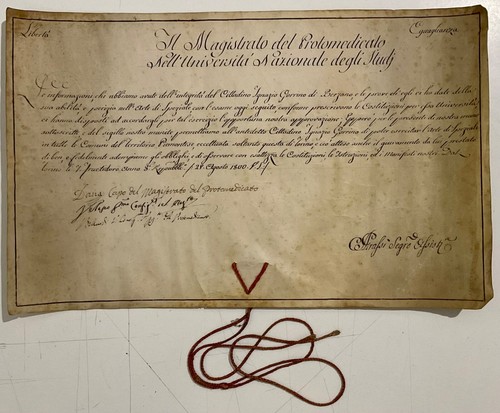 Libertà Eguaglianza
Il Magistrato del Protomedicato
Nell'Università Nazionale degli Studj
Le informazioni che abbiamo avute dell'integrità del Cittadino Ignazio Garrino di Borzano e le prove ch'egli ci ha date della
sua abilità e perizia nell'Arte di Speziale con l'esame oggi seguito conforme prescrivono le Costituzioni per essa Università,
ci hanno disposto ad accordargli per tal esercizio l'opportuna nostra approvazione. Epperò per le presenti di nostra mano
sottoscritte, e del sigillo nostro munite permettiamo all'anzidetto Cittadino Ignazio Garrino di poter esercitare l'Arte di Speziale
in tutte le Comuni del Territorio Piemontese eccettuata soltanto questa di Torino, e ciò atteso anche il giuramento da lui prestato
di ben, e fedelmente adempierne gli obblighi, e di osservare con esattezza le Costituzioni, le Istruzioni ed i Manifesti nostri. Dat.
Torino li 7. Fructidoro anno 8. Repubb.
Dana Capo del Magistrato del Protomedicato